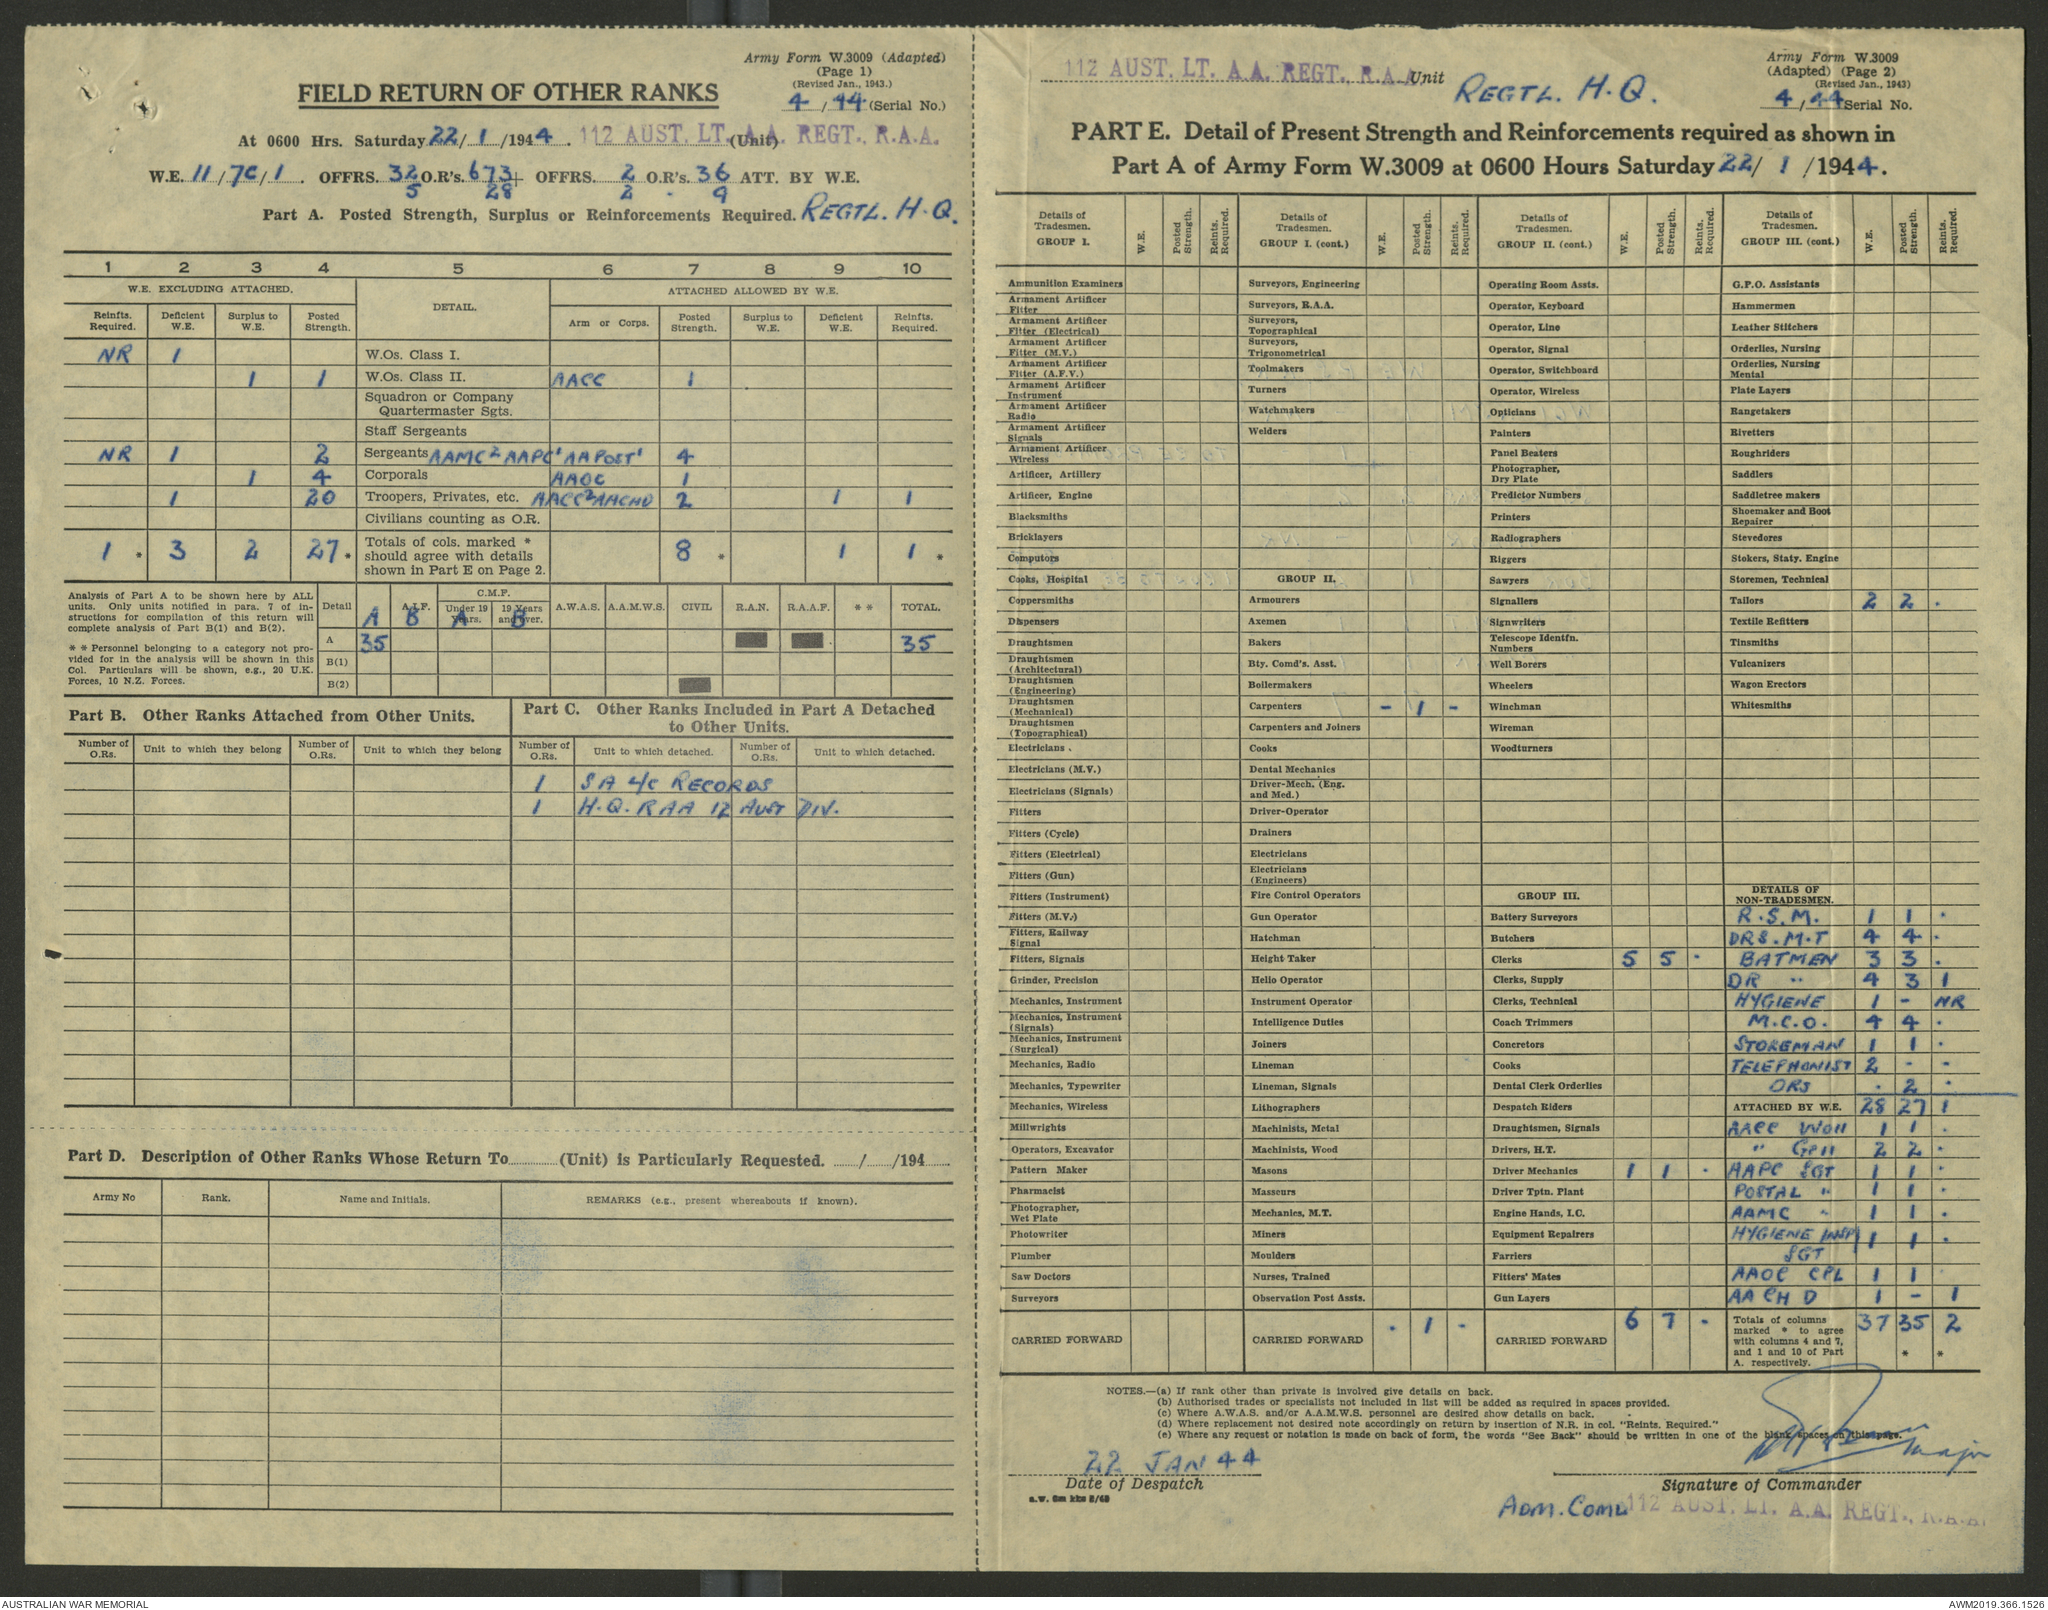 Army Form W.3009 (Adapted)
(Page 1)
(Revised Jan., 1943.)
4/44 (Serial No.)
FIELD RETURN OF OTHER RANKS
At 0600 Hrs. Saturday 22/1/1944. 112 AUST. LT. A.A. REGT., R.A.A. (Unit)
W.E. 11/7C/1. OFFRS. 32 O.R's. 673+ OFFRS. 2 O.R's. 36 ATT. BY W.E.
5 28 2 . 9
Part A. Posted Strength, Surplus or Reinforcements Required. REGTL. H.Q.
1 2 3 4 5 6 7 8 9 10
W.E. EXCLUDING ATTACHED. DETAIL. ATTACHED ALLOWED BY W.E.
Reinfts. Required. Deficient W.E. Surplus to W.E. Posted Strength. Arm or Corps. Posted Strength. Surplus to W.E. Deficient W.E. Reinfts. Required.
NR 1 W.Os. Class I.
1 1 W.Os. Class II. AACC 1
Squadron or Company Quartermaster Sgts.
Staff Sergeants
NR 1 2 Sergeants AAMC 2 AAPC 1 AAPOST 1 4
1 4 Corporals AAOC 1
1 20 Troopers, Privates, etc. AACC 2 AACHD 2 1 1
Civilians counting as O.R.
1 * 3 2 27 * Totals of cols. marked * should agree with details shown in Part E on Page 2. 8 * 1 1 *
Analysis of Part A to be shown here by ALL units. Only units notified in para. 7 of instructions for compilation of this return will complete analysis of Part B(1) and B(2).
* * Personnel belonging to a category not provided for in the analysis will be shown in this Col. Particulars will be shown, e.g., 20 U.K. Forces, 10 N.Z. Forces.
Detail A.I.F. C.M.F. Under 19 Years. 19 Years and over. A.W.A.S. A.A.M.W.S. CIVIL R.A.N. R.A.A.F. * * TOTAL.
A B A B
A 35 35
B(1)
B(2)
Part B. Other Ranks Attached from Other Units.
Part C. Other Ranks Included in Part A Detached to Other Units.
Number of O.Rs. Unit to which they belong Number of O.Rs. Unit to which they belong Number of O.Rs. Unit to which detached. Number of O.Rs. Unit to which detached.
1 SA L/C RECORDS
1 H.Q. RAA 12 AUST DIV.
Part D. Description of Other Ranks Whose Return To............(Unit) is Particularly Requested. ....../....../194......
Army No Rank. Name and Initials. REMARKS (e.g., present whereabouts if known).
112 AUST. LT. A.A. REGT., R.A.A. Unit REGTL. H.Q.
Army Form W.3009
(Adapted) (Page 2)
(Revised Jan., 1943)
4/44 Serial No.
PART E. Detail of Present Strength and Reinforcements required as shown in
Part A of Army Form W.3009 at 0600 Hours Saturday 22/1/1944.
Details of Tradesmen. GROUP I. W.E. Posted Strength. Reints. Required.
Ammunition Examiners
Armament Artificer Fitter
Armament Artificer Fitter (Electrical)
Armament Artificer Fitter (M.V.)
Armament Artificer Fitter (A.F.V.)
Armament Artificer Instrument
Armament Artificer Radio
Armament Artificer Signals
Armament Artificer Wireless
Artificer, Artillery
Artificer, Engine
Blacksmiths
Bricklayers
Computors
Cooks, Hospital
Coppersmiths
Dispensers
Draughtsmen
Draughtsmen (Architectural)
Draughtsmen (Engineering)
Draughtsmen (Mechanical)
Draughtsmen (Topographical)
Electricians
Electricians (M.V.)
Electricians (Signals)
Fitters
Fitters (Cycle)
Fitters (Electrical)
Fitters (Gun)
Fitters (Instrument)
Fitters (M.V.)
Fitters, Railway Signal
Fitters, Signals
Grinder, Precision
Mechanics, Instrument
Mechanics, Instrument (Signals)
Mechanics, Instrument (Surgical)
Mechanics, Radio
Mechanics, Typewriter
Mechanics, Wireless
Millwrights
Operators, Excavator
Pattern Maker
Pharmacist
Photographer, Wet Plate
Photowriter
Plumber
Saw Doctors
Surveyors
CARRIED FORWARD
Details of Tradesmen. GROUP I. (cont.) W.E. Posted Strength. Reints. Required.
Surveyors, Engineering
Surveyors, R.A.A.
Surveyors, Topographical
Surveyors, Trigonometrical
Toolmakers
Turners
Watchmakers
Welders
GROUP II.
Armourers
Axemen
Bakers
Bty. Comd's. Asst.
Boilermakers
Carpenters - 1 -
Carpenters and Joiners
Cooks
Dental Mechanics
Driver-Mech. (Eng. and Med.)
Driver-Operator
Drainers
Electricians
Electricians (Engineers)
Fire Control Operators
Gun Operator
Hatchman
Height Taker
Helio Operator
Instrument Operator
Intelligence Duties
Joiners
Lineman
Lineman, Signals
Lithographers
Machinists, Metal
Machinists, Wood
Masons
Masseurs
Mechanics, M.T.
Miners
Moulders
Nurses, Trained
Observation Post Assts.
CARRIED FORWARD . 1 -
Details of Tradesmen. GROUP II. (cont.) W.E. Posted Strength. Reints. Required.
Operating Room Assts.
Operator, Keyboard
Operator, Line
Operator, Signal
Operator, Switchboard
Operator, Wireless
Opticians
Painters
Panel Beaters
Photographer, Dry Plate
Predictor Numbers
Printers
Radiographers
Riggers
Sawyers
Signallers
Signwriters
Telescope Identfn. Numbers
Well Borers
Wheelers
Winchman
Wireman
Woodturners
GROUP III.
Battery Surveyors
Butchers
Clerks 5 5 .
Clerks, Supply
Clerks, Technical
Coach Trimmers
Concretors
Cooks
Dental Clerk Orderlies
Despatch Riders
Draughtsmen, Signals
Drivers, H.T.
Driver Mechanics 1 1 .
Driver Tptn. Plant
Engine Hands, I.C.
Equipment Repairers
Farriers
Fitters' Mates
Gun Layers
CARRIED FORWARD 6 7 .
Details of Tradesmen. GROUP III. (cont.) W.E. Posted Strength. Reints. Required.
G.P.O. Assistants
Hammermen
Leather Stitchers
Orderlies, Nursing
Orderlies, Nursing Mental
Plate Layers
Rangetakers
Rivetters
Roughriders
Saddlers
Saddletree makers
Shoemaker and Boot Repairer
Stevedores
Stokers, Staty. Engine
Storemen, Technical
Tailors 2 2 .
Textile Refitters
Tinsmiths
Vulcanizers
Wagon Erectors
Whitesmiths
DETAILS OF NON-TRADESMEN.
R.S.M. 1 1 .
DRS. M.T 4 4 .
BATMEN 3 3 .
DR " 4 3 1
HYGIENE 1 - NR
M.C.O. 4 4 .
STOREMAN 1 1 .
TELEPHONIST 2 - -
ORS . 2 .
ATTACHED BY W.E. 28 27 1
AACC WOII 1 1 .
" GPII 2 2 .
AAPC SGT 1 1 .
POSTAL " 1 1 .
AAMC " 1 1 .
HYGIENE INSP SGT 1 1 .
AAOC CPL 1 1
AA CH D 1 - 1
Totals of columns marked * to agree with columns 4 and 7, and 1 and 10 of Part A. respectively. 37 35 * 2 *
NOTES.—(a) If rank other than private is involved give details on back.
(b) Authorised trades or specialists not included in list will be added as required in spaces provided.
(c) Where A.W.A.S. and/or A.A.M.W.S. personnel are desired show details on back.
(d) Where replacement not desired note accordingly on return by insertion of N.R. in col. "Reints. Required."
(e) Where any request or notation is made on back of form, the words "See Back" should be written in one of the blank spaces on this page.
22 JAN 44
Date of Despatch
Major
Signature of Commander
Adm. Comd 112 AUST. LT. A.A. REGT., R.A.A.
AUSTRALIAN WAR MEMORIAL
AWM2019.366.1526